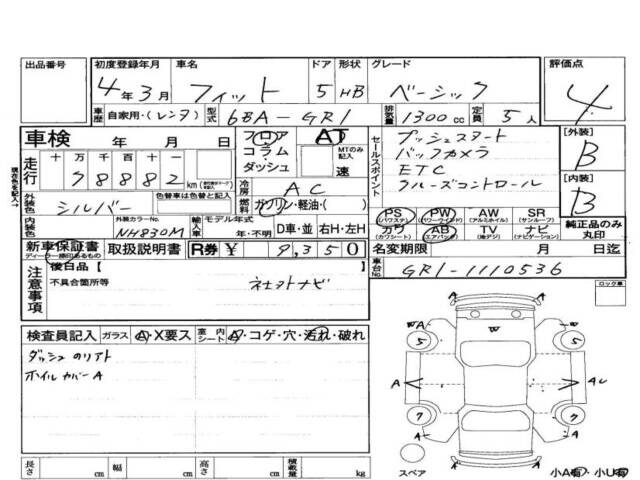 出品番号 初度登録年月 車名 ドア 形状 グレード 評価点
4年3月 フィット 5 HB ベーシック 4
車歴 自家用・(レンタ) 型式 6BA-GR1 排気量 1300cc 定員 5人
車検 年 月 日 フロア AT [外装]
コラム MTのみ記入 B
ダッシュ 速
走行 十 万 千 百 十 一
78882 km
セールスポイント
プッシュスタート
バックカメラ
ETC
クルーズコントロール
[内装]
B
現在色を記入→
外装色 シルバー 色替車は色替色と元色
冷房 AC
燃料 ガソリン・軽油・( )
内装色 外装カラーNo. NH830M 輸入車 モデル年式 年・不明 D車・並 右H・左H
PS (パワステ) PW (パワーウインド) AW (アルミホイル) SR (サンルーフ)
カワ (カワシート) AB (エアバッグ) TV (地デジ) ナビ (ナビゲーション)
純正品のみ丸印
新車保証書 ディーラー捺印あるもの 取扱説明書 R券 ¥ 9,350 名変期限 月 日迄
注意事項 後日品【 】
不具合箇所等 社外ナビ
車台No. GR1-1110536
ロック車
検査員記入 ガラス A・X要ス 室内シート A・コゲ・穴・汚れ・破れ
ダッシュ のリアト
ホイルカバーA
W A W
5 5
A A
7 7
A A
スペア 小A有・小U有
長さ cm 幅 cm 高さ cm 積載量 kg